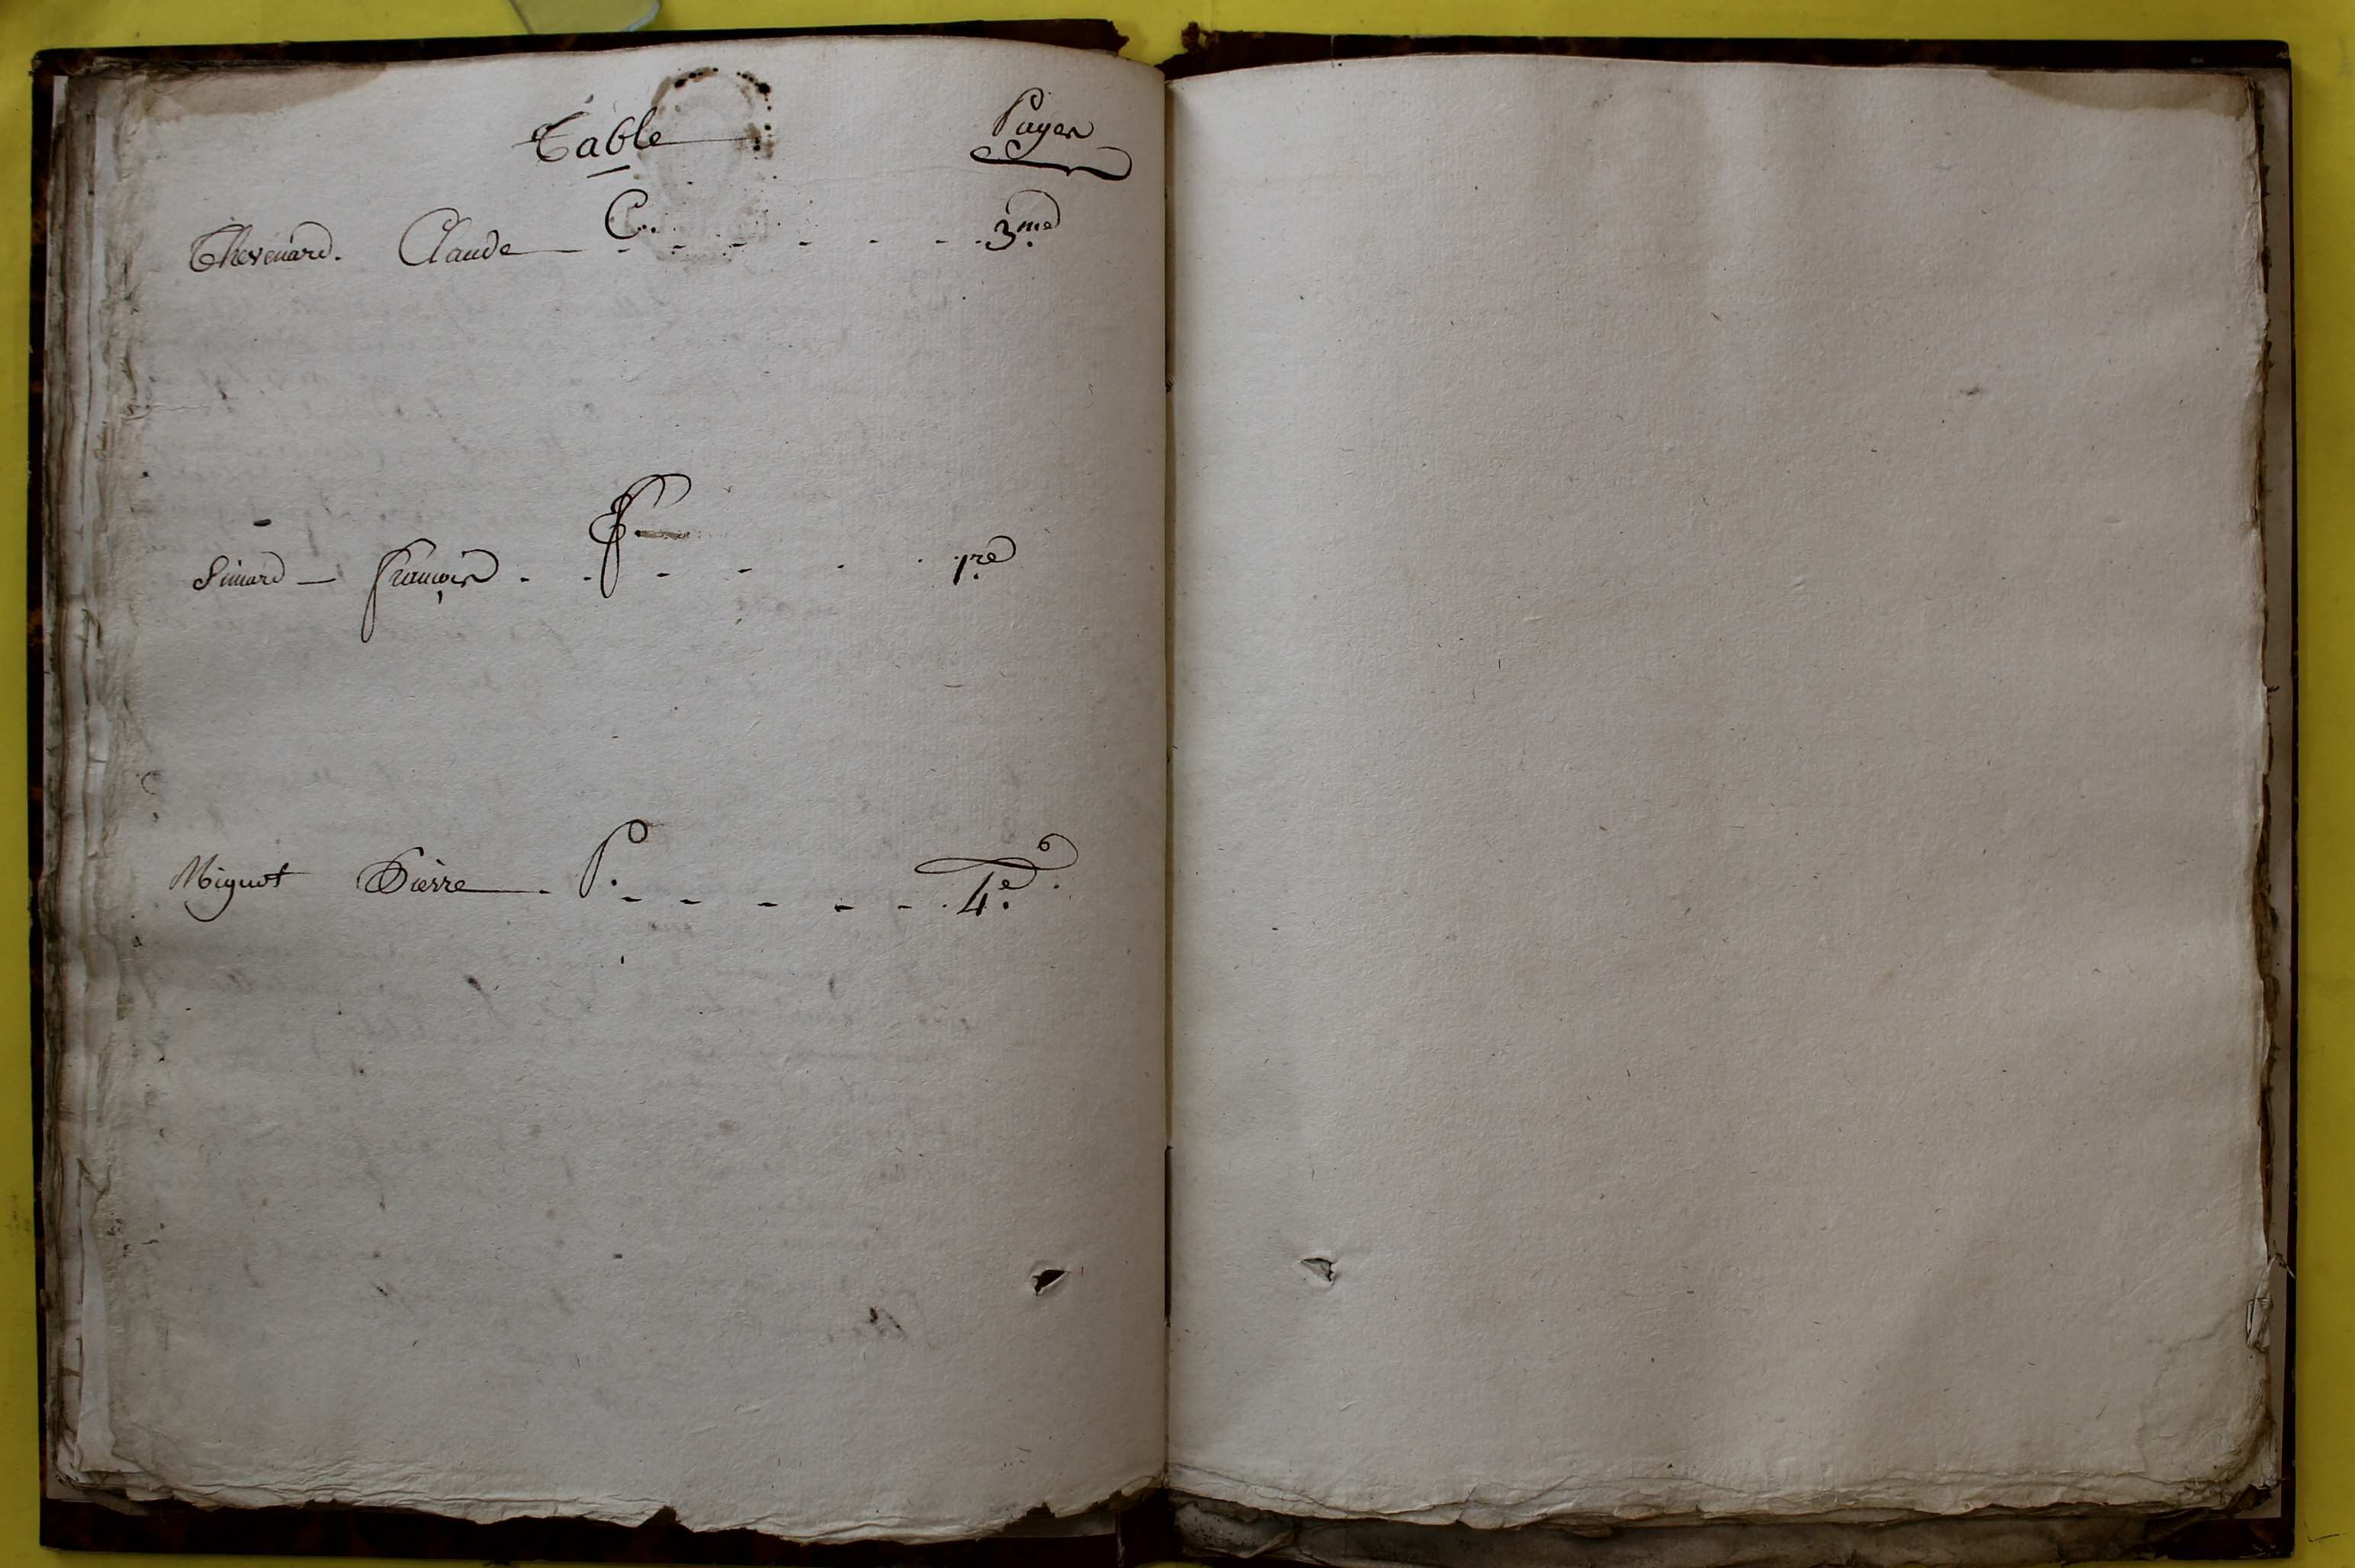 Table Pages
C.
Thevenard. Claude - - - - - - 3me
F.
Simard — François - - - - - 1re
P.
Mignot Pierre - - - - - - 4e